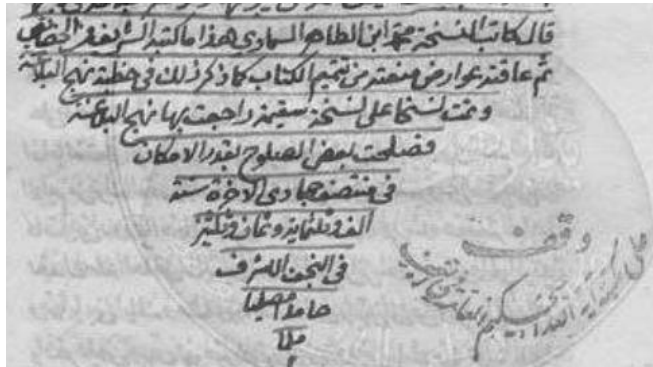 قال كاتب النسخة محمد ابن الطاهر السماوي هذا ما كتبه الشريف في الخصائص
ثم عاقته عوارض منعته من تتميم الكتاب كما ذكر ذلك في خطبة نهج البلاغة
وتمت نسخا على نسخة سقيمة راجعت بها نهج البلاغة
فصلحت بعض الصلوح بقدر الامكان
في منتصف جمادى الاخرة سنة
الف وثلثماية وثمان وثلثين
في النجف الاشرف
حامدا مصليا
وقف
على مكتبة آية الله الحكيم العامة